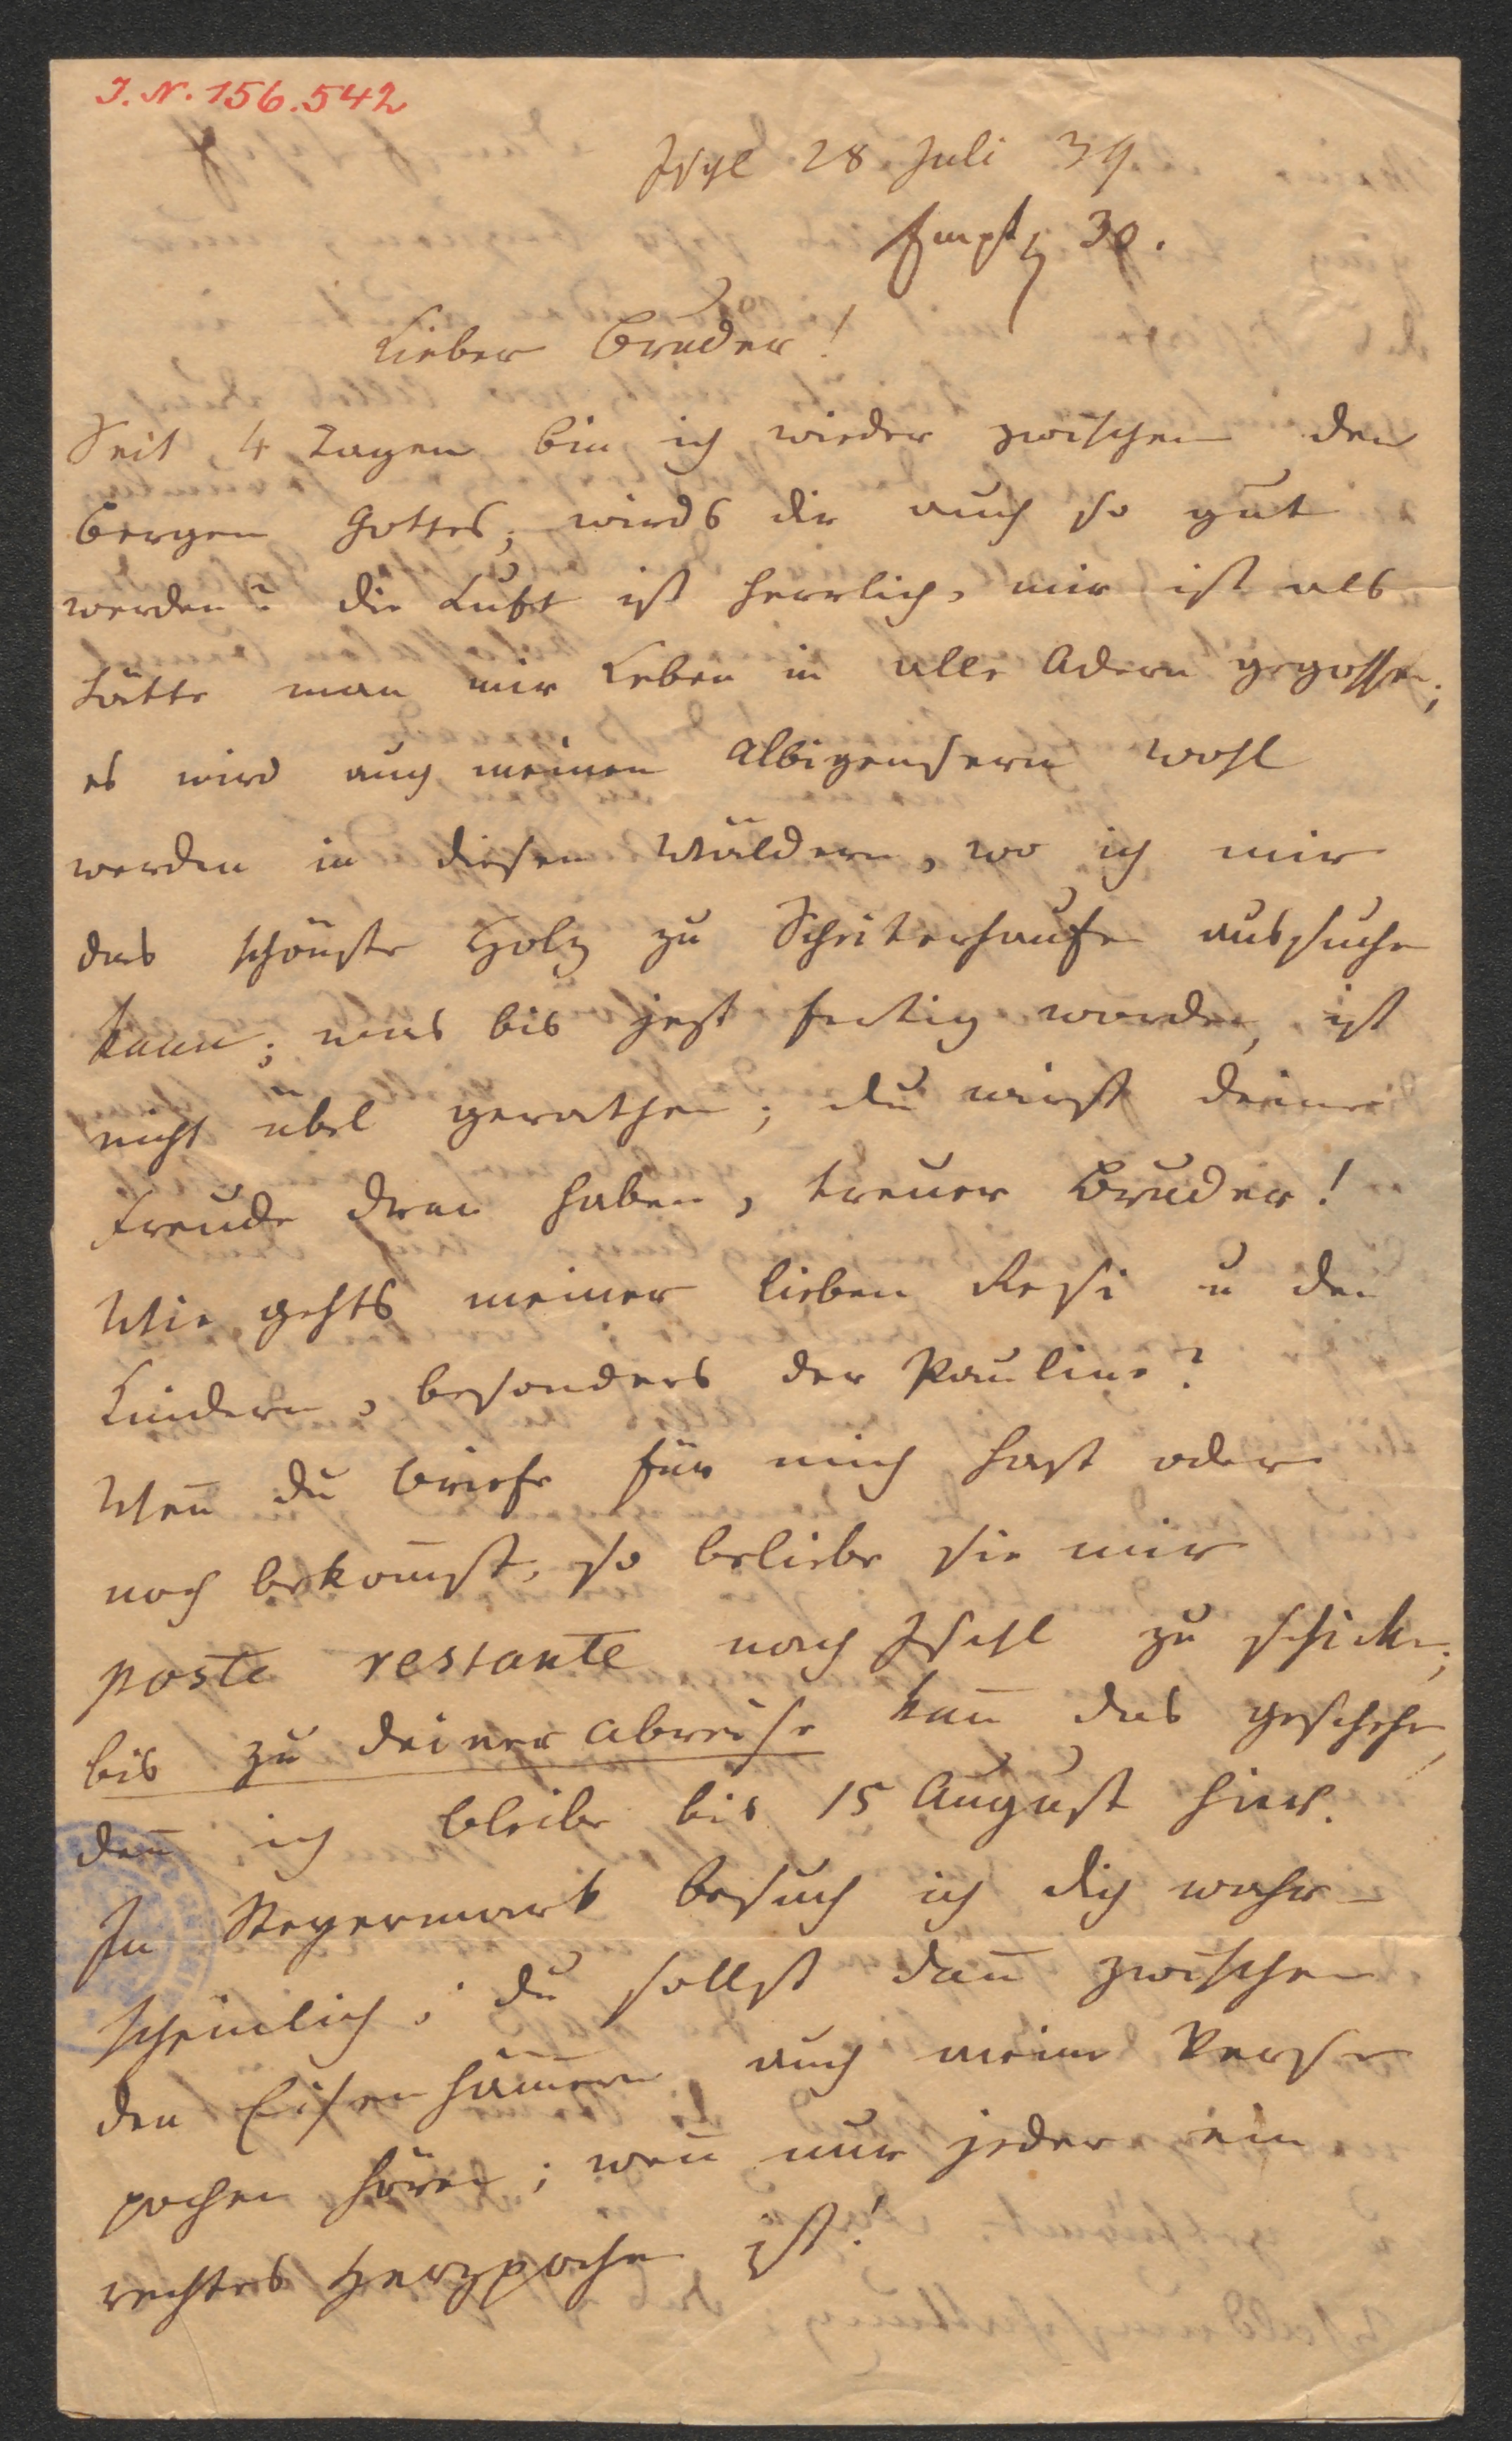 I. N. 156.542
Ischl 28 Juli 39
Empf 30.
Lieber Bruder!
Seit 4 Tagen bin ich wieder zwischen den
Bergen Gottes; wirds dir auch so gut
werden? die Luft ist herrlich, mir ist als
hätte man mir Leben in alle Adern gegossen;
es wird auch meinen Albigensern wohl
werden in diesen Wäldern, wo ich mir
das schönste Holz zu Scheiterhaufen aussuchen
kann; was bis jezt fertig worden, ist
nicht übel gerathen; du wirst deine
Freude dran haben, treuer Bruder!
Wie gehts meiner lieben Resi u den
Kindern, besonders der Pauline?
Wen̄ du Briefe für mich hast oder
noch bekom̄st, so beliebe sie mir
poste restante nach Ischl zu schicken;
bis zu deiner Abreise kan̄ das geschehen,
den̄ ich bleibe bis 15 August hier.
In Steyermark besuch ich dich wahr-
scheinlich; du sollst dan̄ zwischen
den Eisenhäm̄ern auch meine Verse
pochen hören; wen̄ nur jeder ein
rechtes Herzpochen ist!